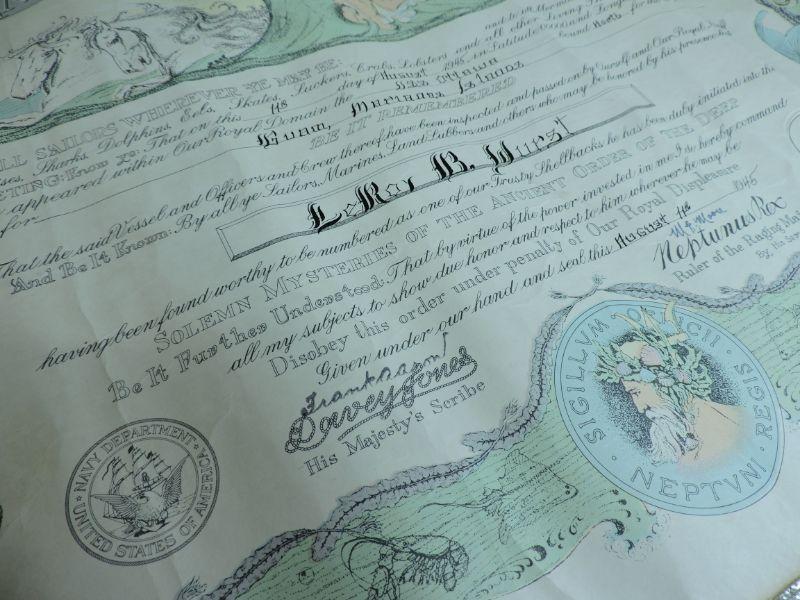 and to all
LL SAILORS WHEREVER YE MAY BE:
ses, Sharks, Dolphins, Eels, Skates, Suckers, Crabs, Lobsters and all other Living
ETING: Know Ye: That on this 11th day of August 1945, in Latitude 00000 and Long
appeared within Our Royal Domain the USS Ottawa bound North for the
for Guam, Marianas Islands
BE IT REMEMBERED
That the said Vessel and Officers and Crew thereof have been inspected and passed on by Ourself and Our Royal
And Be It Known: By all ye Sailors, Marines, Land Lubbers and others who may be honored by his presence
LeRoy B. Hurst
having been found worthy to be numbered as one of our Trusty Shellbacks he has been duly initiated into the
SOLEMN MYSTERIES OF THE ANCIENT ORDER OF THE DEEP
Be It Further Understood: That by virtue of the power invested in me I do hereby command
all my subjects to show due honor and respect to him wherever he may be
Disobey this order under penalty of Our Royal Displeasure
Given under our hand and seal this August 11th 1945
Davey Jones
His Majesty's Scribe
Neptunus Rex
Ruler of the Raging Mai
By His Ser
NAVY DEPARTMENT
UNITED STATES OF AMERICA
SIGILLVM
NEPTVNI REGIS